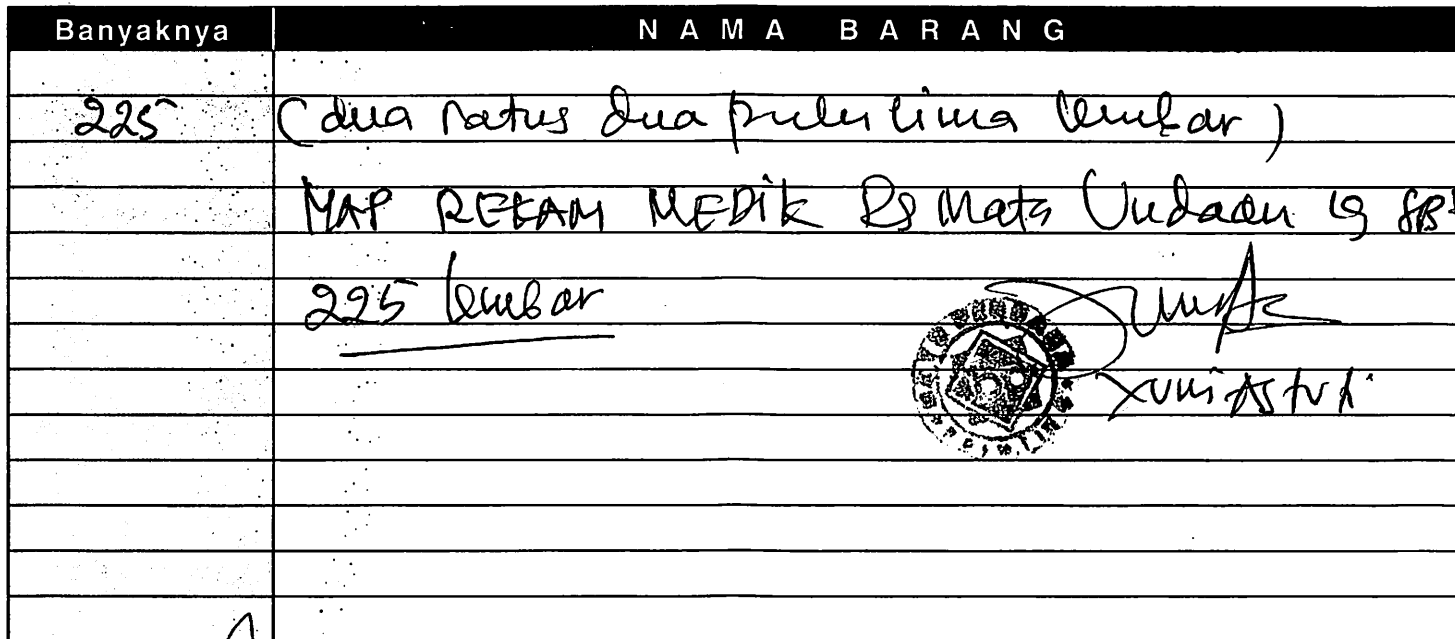 Banyaknya NAMA BARANG
225 (dua ratus dua puluh lima lembar)
MAP REKAM MEDIK RS Mata Undaan
225 lembar
Yuni Astuti